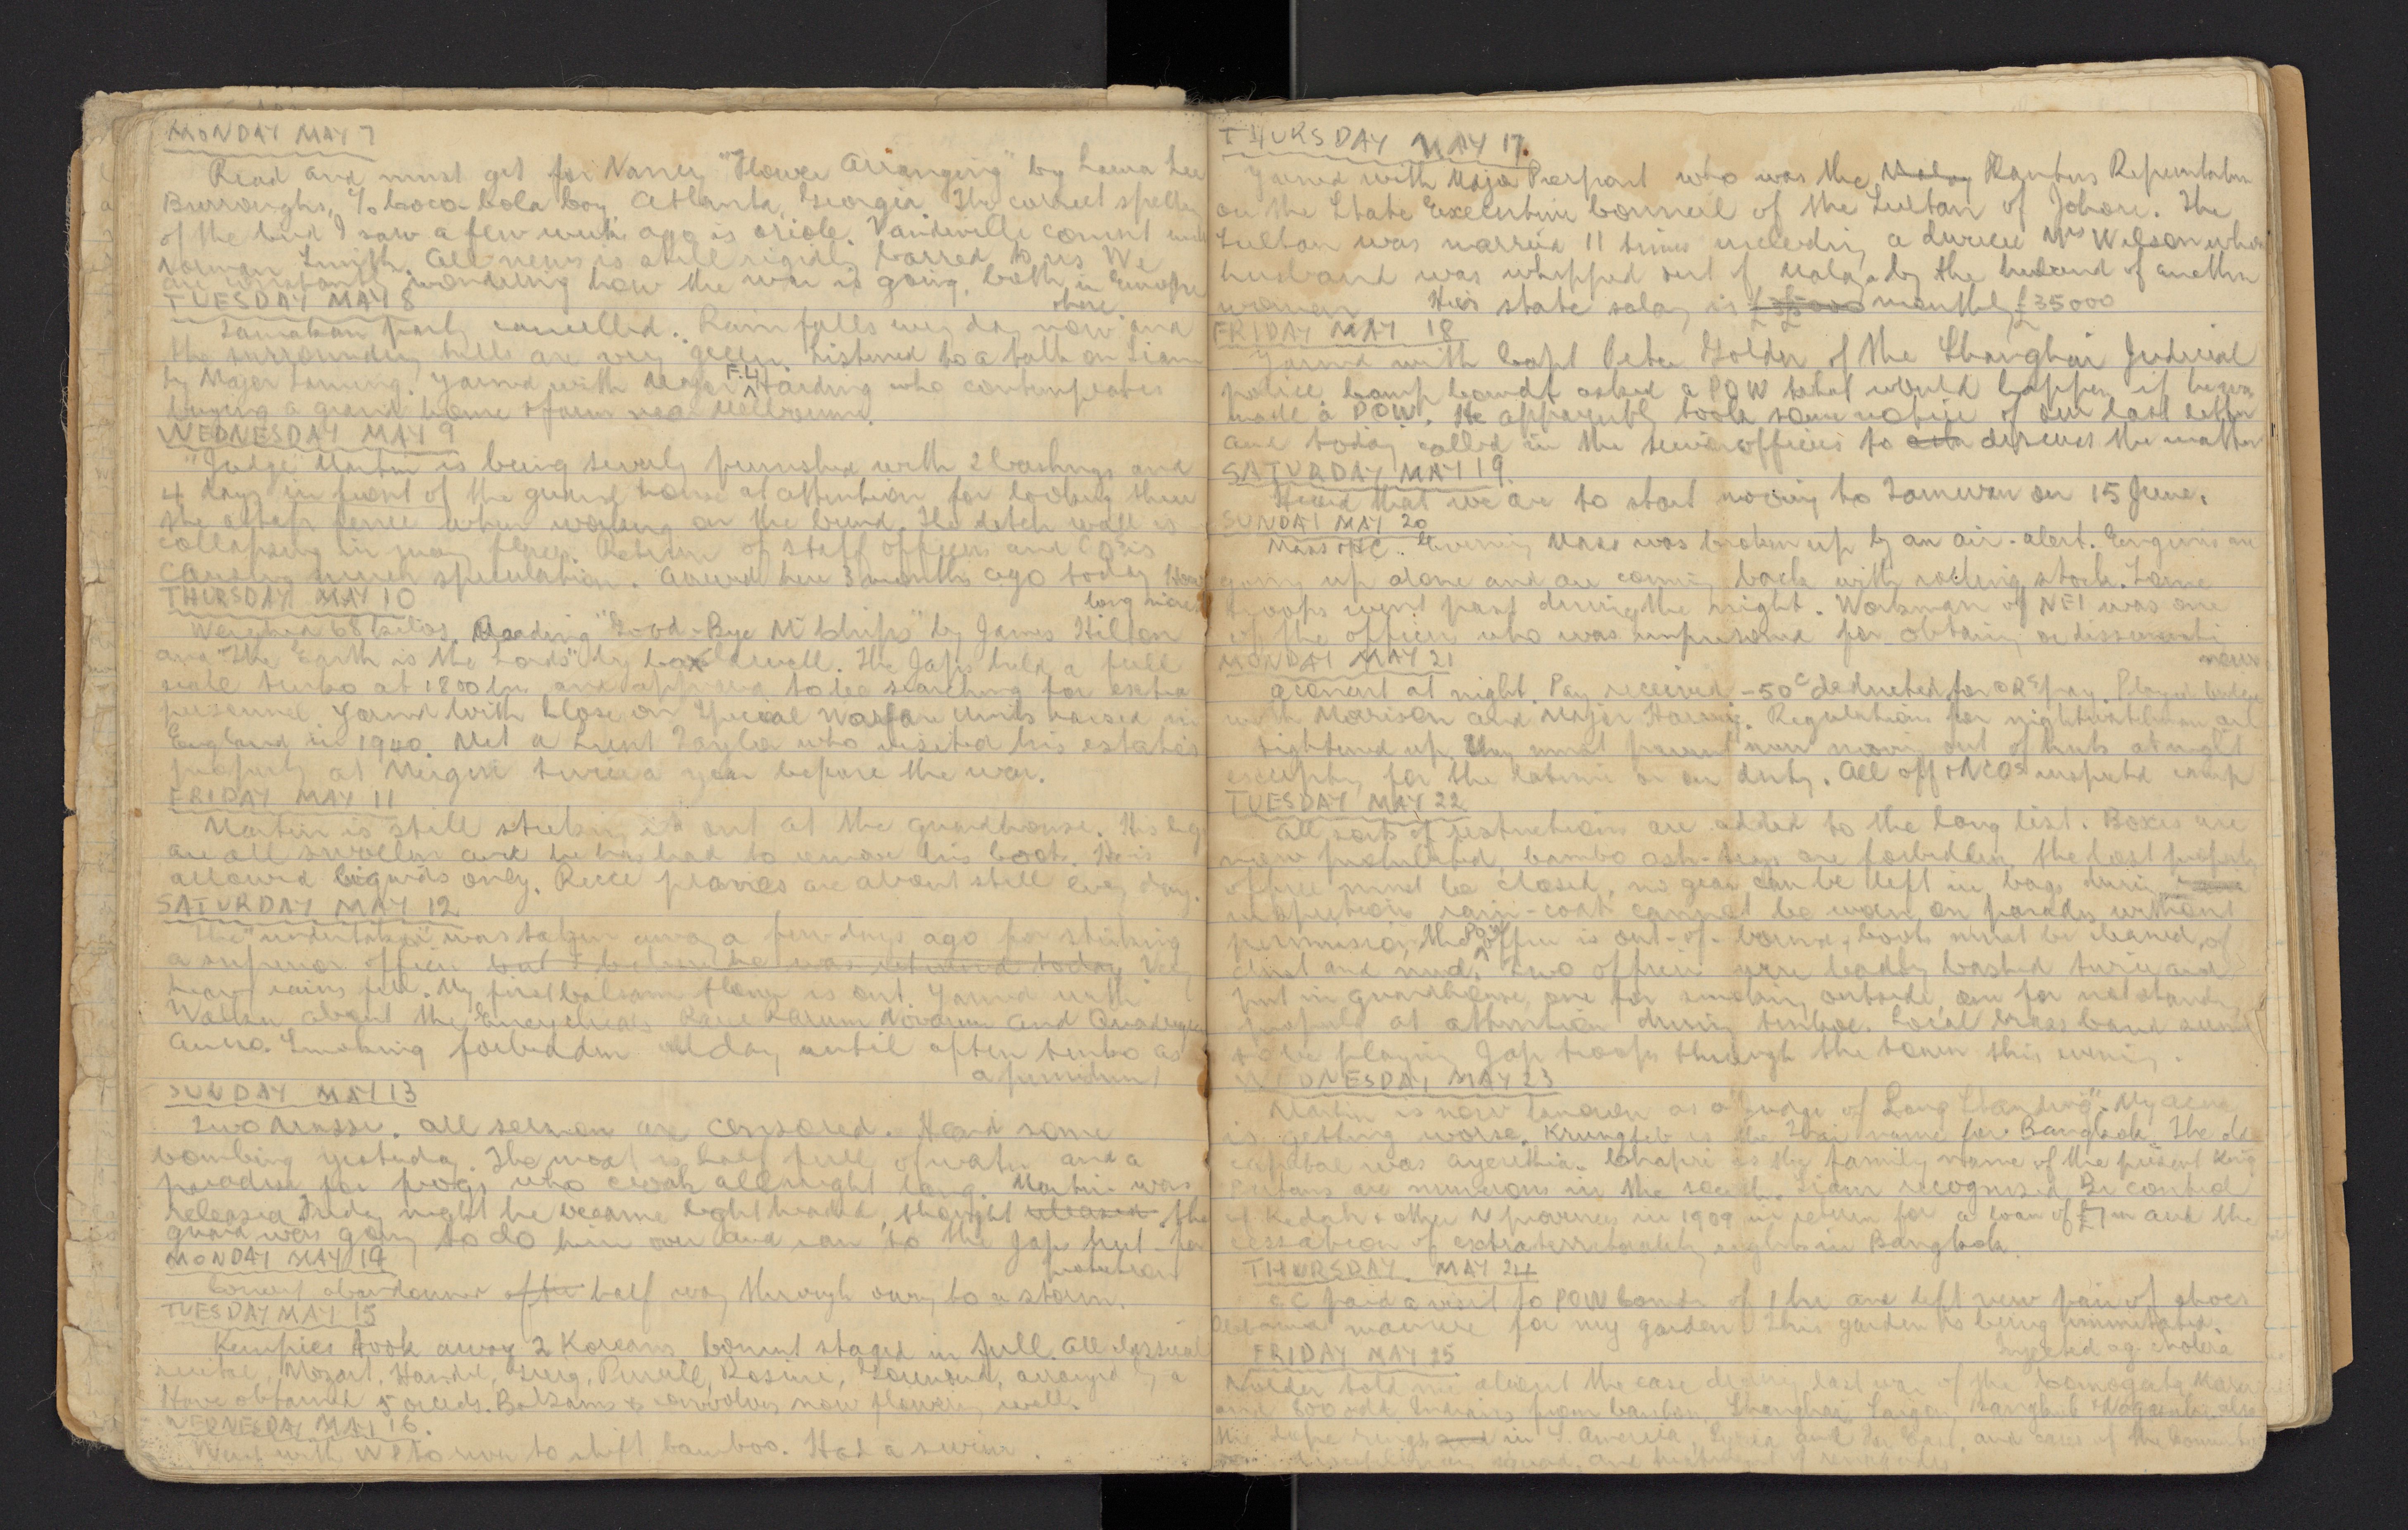 MONDAY MAY 7
Read and must get for Nancy "Flower Arranging" by Laura Lee
Burroughs, c/o Coco-Cola Coy Atlanta, Georgia. The correct spelling
of the bird I saw a few weeks ago is oriole. Vaudeville concert
Norman Smith. All news is still rigidly barred to us. We
are constantly wondering how the war is going, both in Europe
TUESDAY MAY 8
party cancelled. Rain falls every day now and
the surrounding hills are very green. Listened to a talk on Siam
by Major. Yarned with Major F.H. Harding who contemplates
buying a grand home & farm near Melbourne.
WEDNESDAY MAY 9
"Judge" Martin is being severely punished with 2 bashings and
4 days in front of the guard house at attention for looking thru
the atap fence when working on the bund. The ditch wall is
collapsing in many places. Return of staff officers and COs is
causing much speculation. Arrived here 3 months ago today How
long more
THURSDAY MAY 10
Weighed 68 kilos. Reading "Good-Bye Mr Chips" by James Hilton
and "The Earth is the Lords" by Caldwell. The Japs held a full
scale tenko at 1800 hrs and appeared to be searching for extra
personnel. Yarned with Close on Special Warfare Units raised in
England in 1940. Met a Lieut Taylor who visited his estate's
property at Mergui twice a year before the war.
FRIDAY MAY 11
Martin is still sticking it out at the guardhouse. His legs
are all swollen and he has had to remove his boots. He is
allowed liquids only. Recce planes are about still every day.
SATURDAY MAY 12
The "undertaker" was taken away a few days ago for striking
a superior officer but I believe he was returned today. Very
heavy rains fell. My first balsam flower is out. Yarned with
about the Encyclicals Rerum Novarum and
Anno. Smoking forbidden all day until after tenko as
a punishment
SUNDAY MAY 13
Two Masses. All sermons are censored. Heard some
bombing yesterday. The moat is half full of water and a
paradise for frogs who croak all night long. Martin was
released Friday night he became light headed, thought released the
guard was going to do him over and ran to the Jap hut for
protection
MONDAY MAY 14
Concert abandoned after half way through owing to a storm.
TUESDAY MAY 15
Kempies took away 2 Koreans. Concert staged in full. All classical
recital, Mozart, Handel, Grieg, Purcell, Rosini, Gounod, arranged by a
Have obtained 5 orchids. Balsams & convolvus now flowering well.
WEDNESDAY MAY 16.
Went with to river to shift bamboo. Had a swim.
THURSDAY MAY 17.
Yarned with Major Pierpont who was the Malay Planters Representative
on the State Executive Council of the Sultan of Johore. The
Sultan was married 11 times including a divorcee Mrs Wilson whose
husband was whipped out of Malaya by the husband of another
woman. His state salary is £35000 monthly £35000
FRIDAY MAY 18
Yarned with Capt Peter Golder of the Shanghai Judicial
police. Camp Comdt asked a POW what would happen if he was
made a POW. He apparently took some notice of our last letter
and today called in the senior officers to discuss the matter
SATURDAY MAY 19
Heard that we are to start moving to Tamuran on 15 June.
SUNDAY MAY 20
Mass & HC. Evening Mass was broken up by an air-alert. Engines are
going up alone and are coming back with rolling stock. Some
troops went past during the night. Workman of NEI was one
of the officers who was imprisoned for obtaining or disseminating
news
MONDAY MAY 21
A concert at night. Pay received - 50c deducted for ORs pay. Played bridge
with Morrison and Major Harvey. Regulations for nightwatchmen are
tightened up. They must prevent men moving out of huts at night
excepting for the latrine or on duty. All off & NCOs inspected camp
TUESDAY MAY 22
All sorts of restrictions are added to the long list. Boxes are
now prohibited, bamboo ash-trays are forbidden, the lost property
office must be closed, no gear can be left in bags during
inspection, rain-coats cannot be worn on parades without
permission, the office is out-of-bounds, boots must be cleaned of
dust and mud. Two officers were badly bashed twice and
put in guardhouse, one for smoking outside, one for not standing
properly at attention during tenko. Local brass band seems
to be playing Jap troops through the town this evening.
WEDNESDAY MAY 23
Martin is now known as a "Judge of Long Standing". My acne
is getting worse. Krungteb is the Thai name for Bangkok. The old
capital was Ayuthia. Chapri is the family name of the present King
are numerous in the south. Siam recognised Br control
of Kedah & other N provinces in 1909 in return for a loan of and the
cessation of extraterritoriality rights in Bangkok.
THURSDAY MAY 24
CC paid a visit to POW Comdr of 1 hr and left new pair of shoes
Obtained manure for my garden. This garden is being immitated.
Injected ag. cholera
FRIDAY MAY 25
told me about the case during last war of the
and 800 odd Indians from Canton, Shanghai, Bangkok also
the dope rings in S. America, Syria and Far East, and cases of the
squad, and treatment of renegades